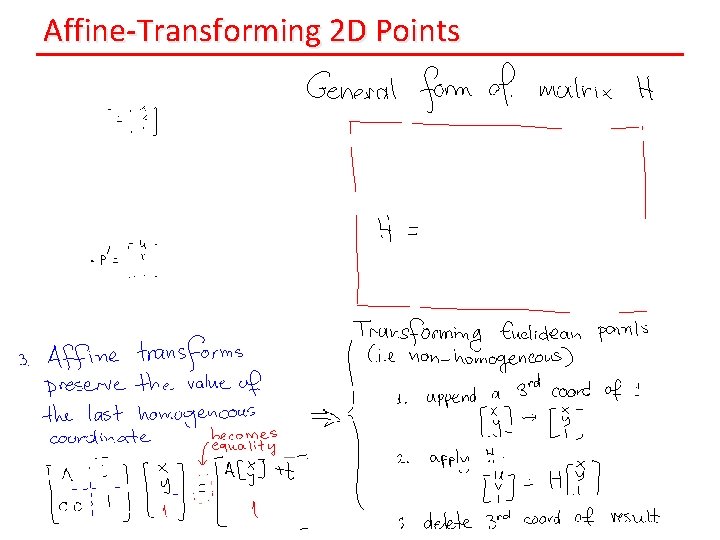 Affine-Transforming 2D Points
General form of matrix H
P' =
H =
3. Affine transforms
preserve the value of
the last homogeneous
coordinate
becomes
equality
[x y 1] A[x y] + t 1
Transforming Euclidean points
(i.e non-homogeneous)
1. append a 3rd coord of 1
[x y] → [x y 1]
2. apply H
[u v 1] = H [x y 1]
3 delete 3rd coord of result